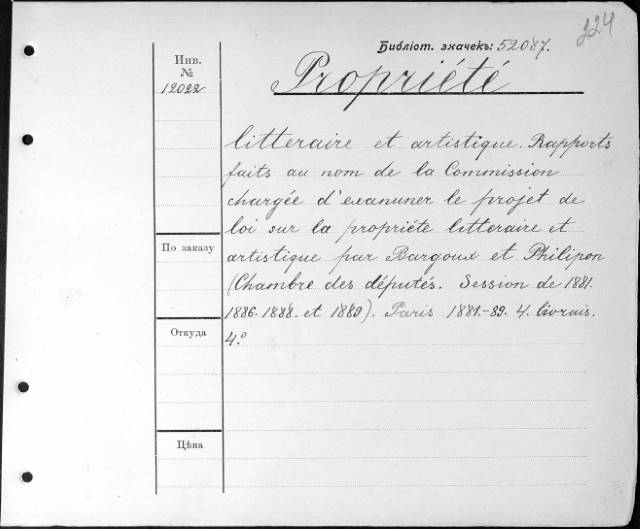 224
Библіот. значекъ: 52087.
Инв.
№
12022
Propriété
litteraire et artistique. Rapports
faits au nom de la Commission
chargée d'examiner le projet de
loi sur la propriéte litteraire et
artistique par Bargoux et Philipon
(Chambre des députés. Session de 1881.
1886. 1888. et 1889). Paris 1881.-89. 4. livrais.
4.º
По заказу
Откуда
Цѣна